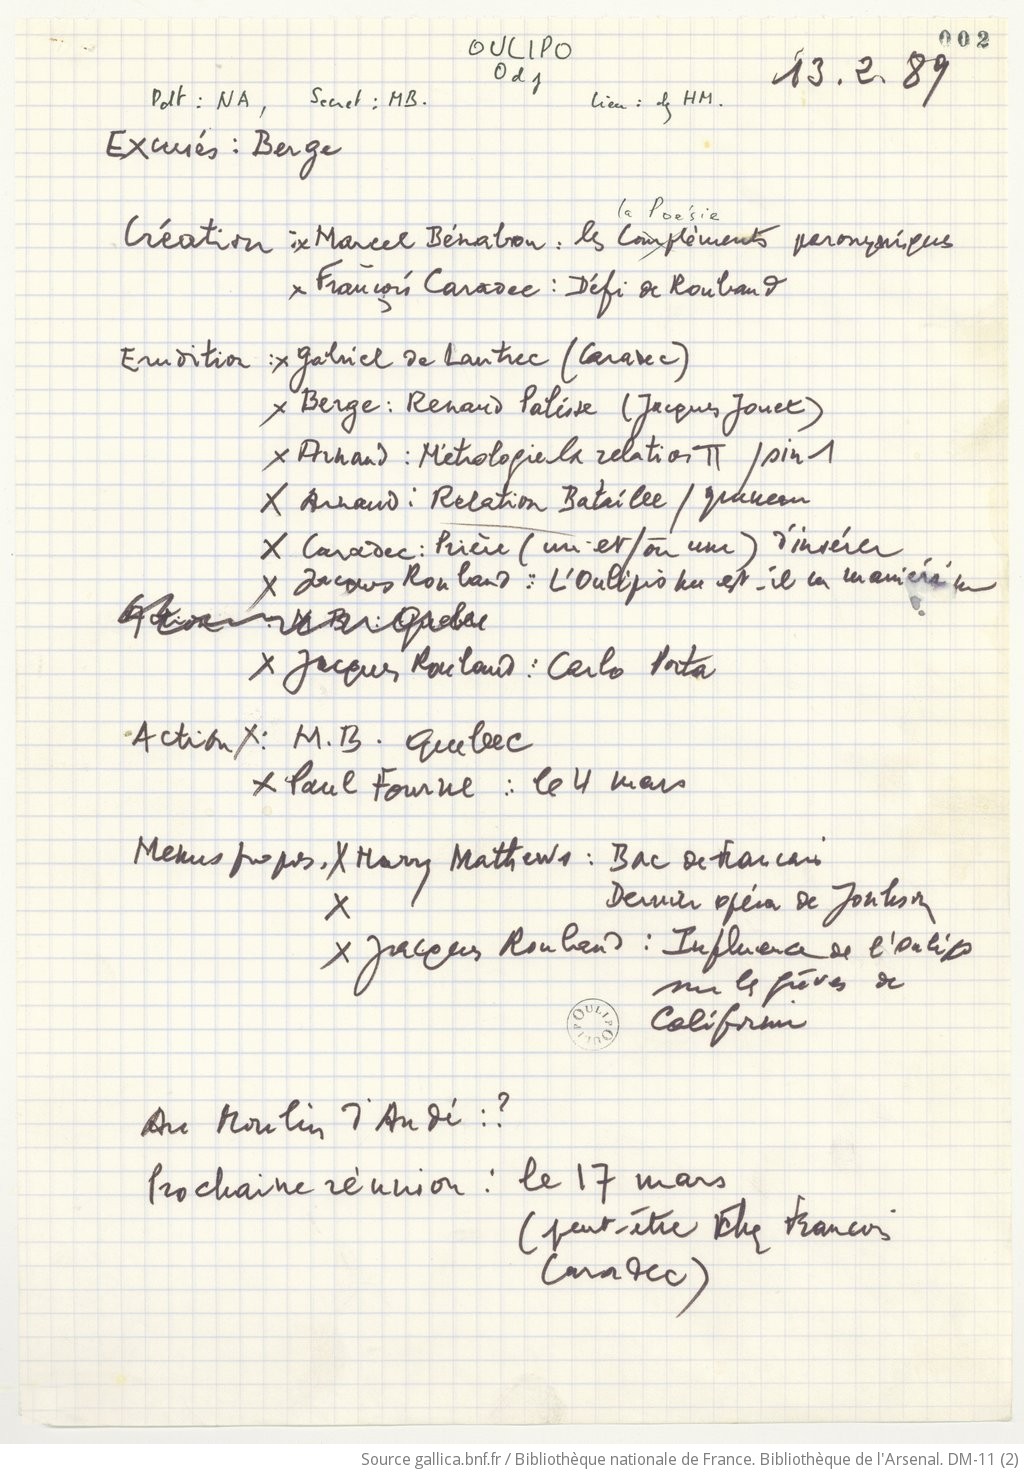 002
OULIPO
Odj
13.2.89
Pdt : NA, Secret : MB. Lieu : chz HM.
Excusés : Berge
la Poésie
Création : x Marcel Bénabou : les Compléments paronymiques
x François Caradec : Défi de Roubaud
Erudition : x Gabriel de Lautrec (Caradec)
x Berge : Renaud Palisse (Jacques Jouet)
x Arnaud : Métrologie la relation π / sin 1
x Arnaud : Relation Bataille / queneau
x Caradec : Prière (un-et/ou une) d'insérer
x Jacques Roubaud : L'Oulipo est-il un maniérisme
?
Action : M B : Québec
x Jacques Roubaud : Carlo Porta
Action x : M.B. Québec
x Paul Fournel : le 4 mars
Menus propos . x Harry Mathews : Bac de Francais
x Dernier opéra de Jonhson
x Jacques Roubaud : Influence de l'Oulipo
sur les grèves de
Californie
OULIPO OULIPO
Au Moulin d'Andé : ?
Prochaine réunion : le 17 mars
(peut-être chez François
Caradec)
Source gallica.bnf.fr / Bibliothèque nationale de France. Bibliothèque de l'Arsenal. DM-11 (2)